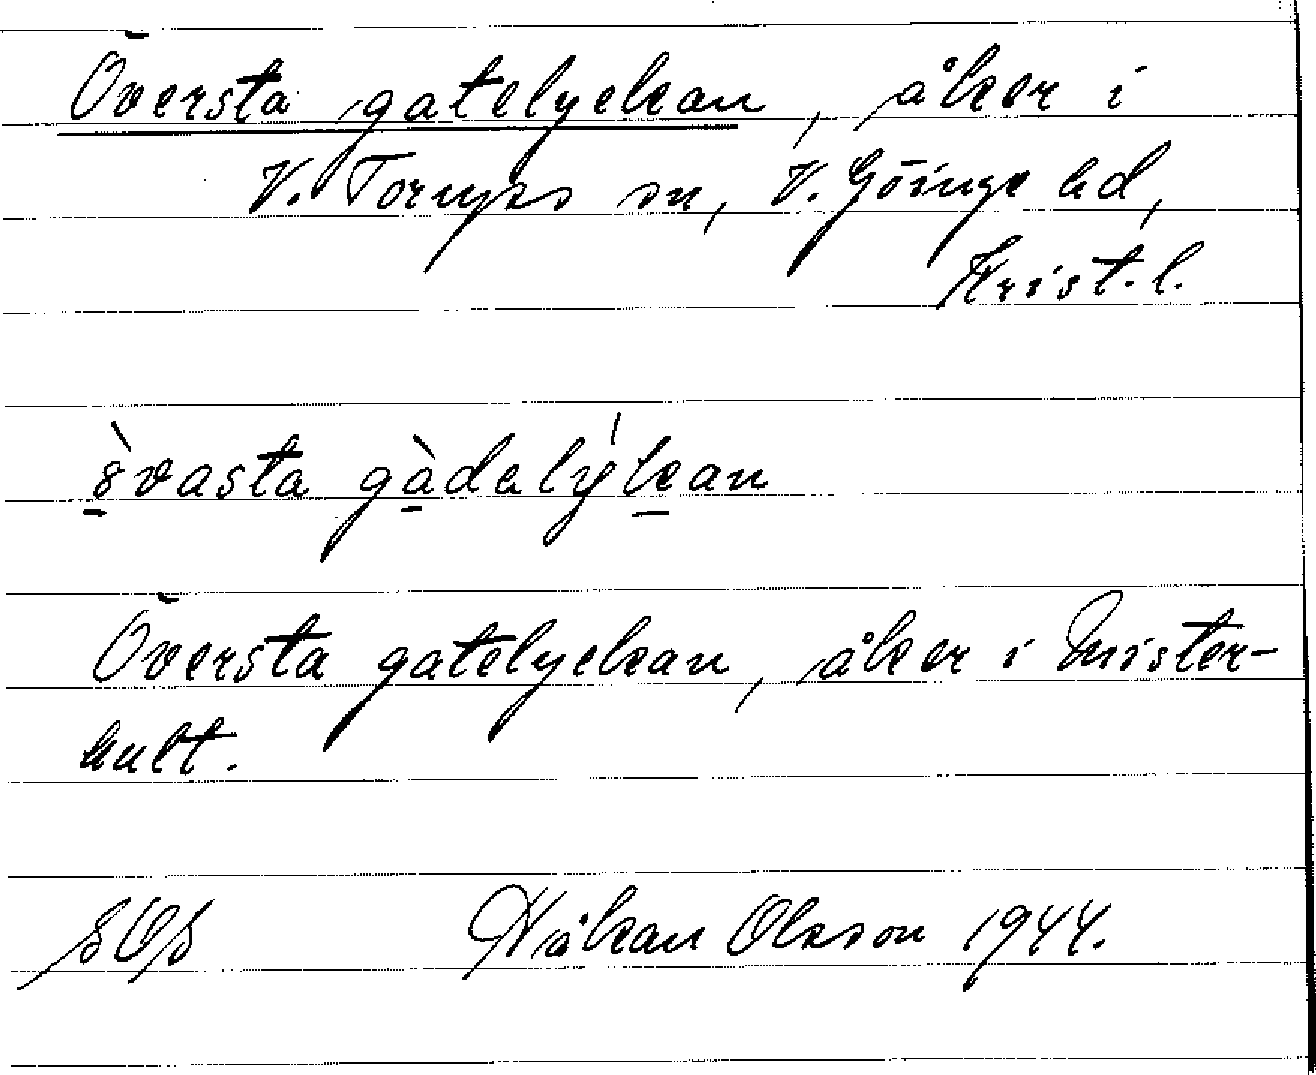 Översta gatelyckan, åker i
V. Torups sn, V. Göinge hd,
Krist. l.
Översta gatelyckan, åker i Mister-
hult.
Håkan Olsson 1944.